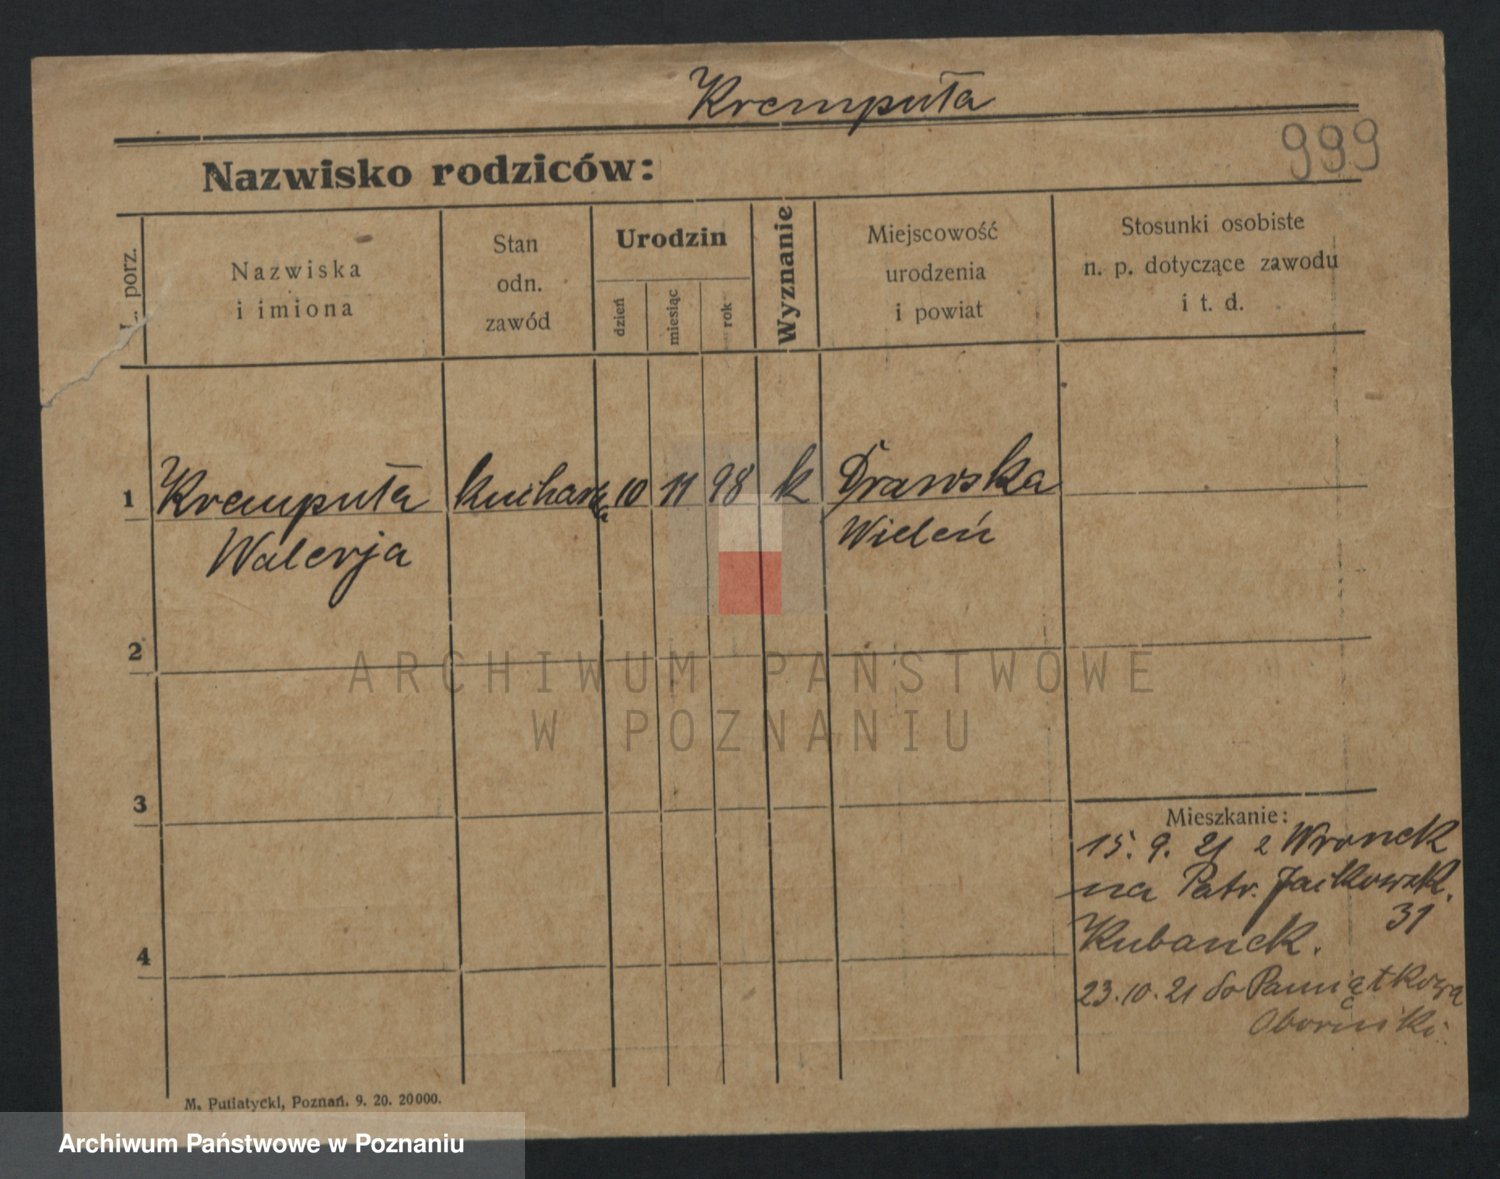 Krempuła
999
Nazwisko rodziców:
L. porz.
Nazwiska
i imiona
Stan
odn.
zawód
Urodzin
dzień
miesiąc
rok
Wyznanie
Miejscowość
urodzenia
i powiat
Stosunki osobiste
n. p. dotyczące zawodu
i t. d.
1 Krempuła kucharka 10 11 98 k Drawska
Walerja Wieleń
2
3
4
Mieszkanie:
15. 9. 21 z Wronek
na Patr. Jackowsk.
31
23. 10. 21 do Pamiątkowa
Oborniki.
M. Putiatycki, Poznań. 9. 20. 20000.
ARCHIWUM PAŃSTWOWE
W POZNANIU
Archiwum Państwowe w Poznaniu